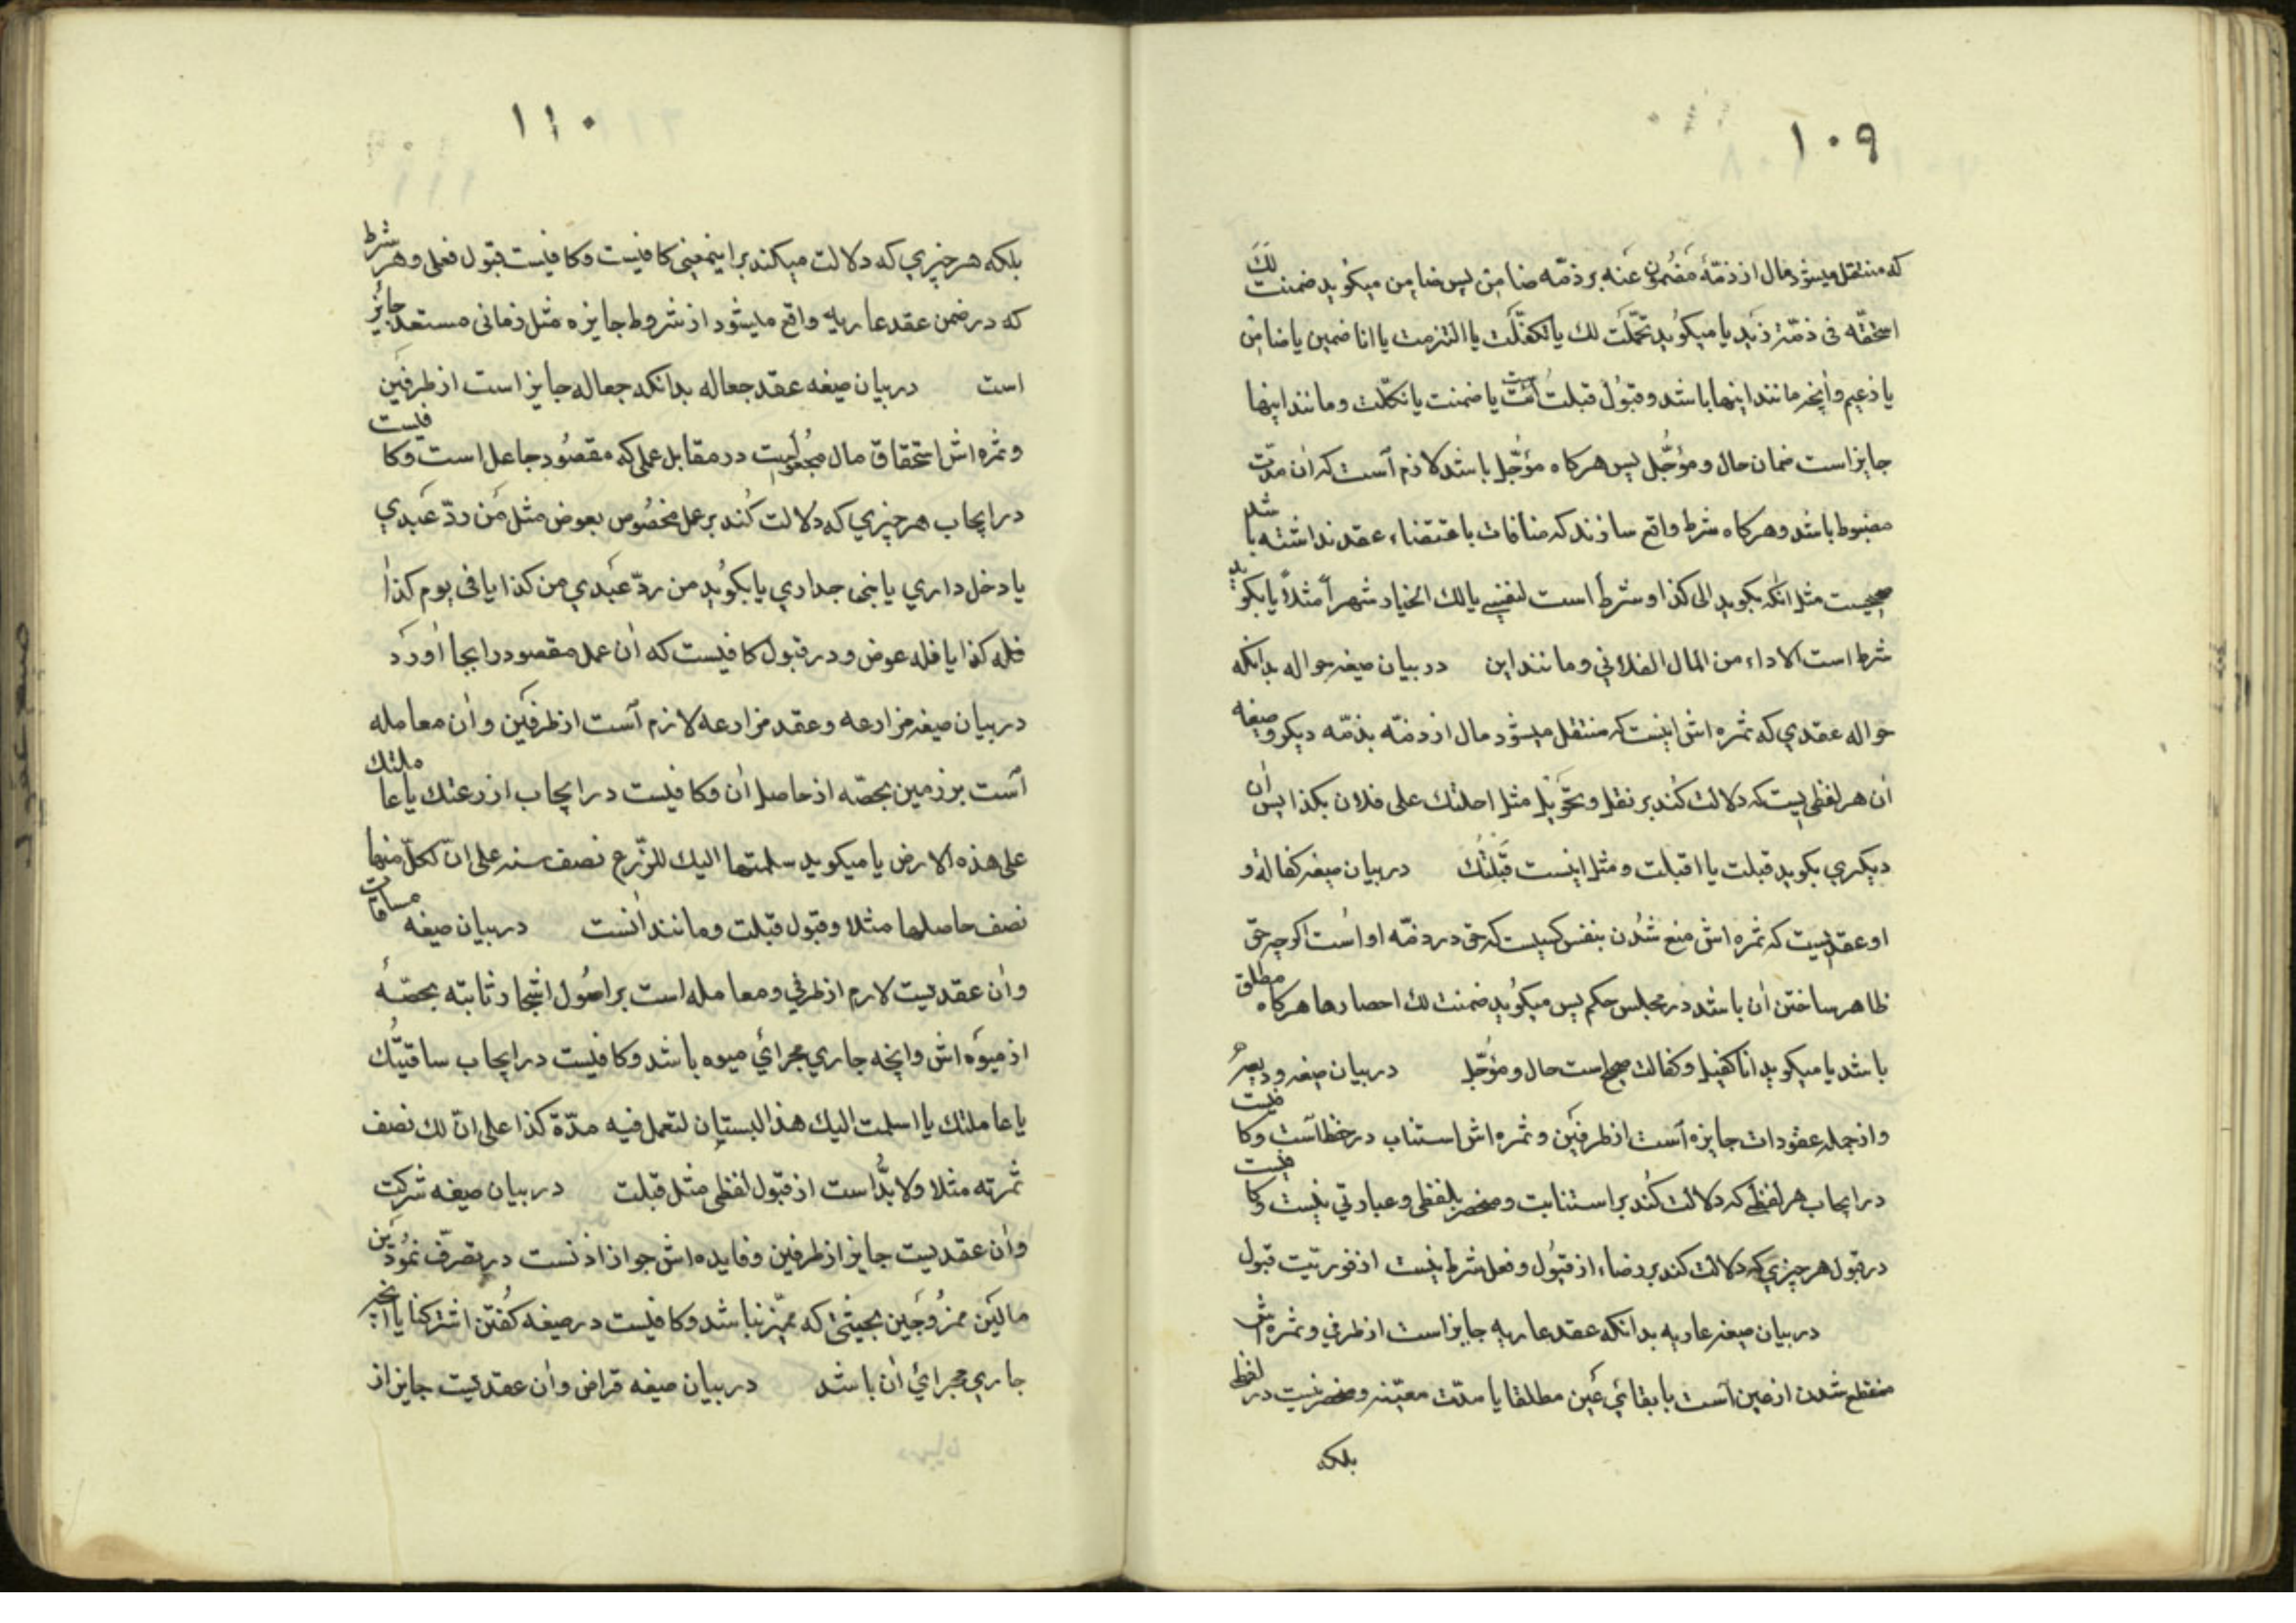 ۱۰۹
که منتقل میشود مال از ذمّهٔ مضمون عنه بر ذمّه ضامن پس ضامن میکوید ضمنت لک
استحقّه فی ذمّة زید یا میکوید تحمّلت لک یا تکفّلت یا التزمت یا انا ضمین یا ضامن
یا زعیم وانچه مانند اینها باشد وقبول قبلت است یا ضمنت یا تکفّلت ومانند اینها
جایز است ضمان حال ومؤجّل پس هرکاه مؤجّل باشد لازم است که ان مدّت
مضبوط باشد وهرکاه شرط واقع سازند که منافات باقتضاء عقد نداشته باشد
صحیحست مثل انکه بکوید الی کذا وشرط است لنفسی یا لک الخیار شهراً مثلاً یا بکوید
شرط است الاداء من المال الفلانی ومانند این در بیان صیغه حواله بدانکه
حواله عقدی که ثمره اش اینست که منتقل میشود مال از ذمّه بذمّه دیکر وصیغه
ان هر لفظی یست که دلالت کند بر نقل وتحویل مثل احلتک علی فلان بکذا پس ان
دیکری بکوید قبلت یا اقبلت ومثل اینست قبّلتک در بیان صیغه کفاله و
او عقدیست که ثمره اش منع شدن بنفس کسیست که حق در ذمّه او است اکرچه حق
ظاهر ساختن ان باشد در مجلس حکم پس میکوید ضمنت لک احصارها هرکاه مطلق
باشد یا میکوید انا کفیل وکفالت صحیح است حال ومؤجّل در بیان صیغه ودیعه
واز جمله عقودات جایزه است از طرفین وثمره اش استناب در حفظ است وکافیست
در ایجاب هر لفظی که دلالت کند بر استنابت ومنحصر بلفظی وعبارتی نیست وکافیست
در قبول هر چیزی که دلالت کند بر رضاء از قبول وفعل شرط نیست از فوریّت قبول
در بیان صیغه عاریه بدانکه عقد عاریه جایز است از طرفی وثمره اش
منقطع شدن از عین است با بقائی عین مطلقا یا مدّت معیّنه ومنحصر نیست در لفظی
بلکه
۱۱۰
بلکه هر چیزی که دلالت میکند بر اینمعنی کافیست وکافیست قبول فعلی وهر شرط
که در ضمن عقد عاریه واقع میشود از شروط جایزه مثل زمانی مستعد جائز
است در بیان صیغه عقد جعاله بدانکه جعاله جایز است از طرفین
وثمره اش استحقاق مال مجعولیست در مقابل عملی که مقصود جاعل است وکافیست
در ایجاب هر چیزی که دلالت کند بر عمل مخصوص بعوض مثل من ردّ عبدی
یا دخل داری یا بنی جداری یا بکوید من ردّ عبدی من کذا یا فی یوم کذا
فله کذا یا فله عوض ودر قبول کافیست که ان عمل مقصود را بجا اورد
در بیان صیغه مزارعه وعقد مزارعه لازم است از طرفین وان معامله
است بر زمین بحصّه از حاصل ان وکافیست در ایجاب ازرعتک یا عاملتک
علی هذه الارض یا میکوید سلمتها الیک للزّرع نصف سنه علی انّ لکلّ منها
نصف حاصلها مثلا وقبول قبلت ومانند انست در بیان صیغه مساقات
وان عقدیست لازم از طرفی ومعامله است بر اصول اشجار ثابته بحصّهٔ
از میوه اش وانچه جاری مجرائی میوه باشد وکافیست در ایجاب ساقیتک
یا عاملتک یا اسلمت الیک هذا البستان لتعمل فیه مدّة کذا علی انّ لک نصف
ثمرته مثلا ولا بدّ است از قبول لفظی مثل قبلت در بیان صیغه شرکت
وان عقدیست جایز از طرفین وفایده اش جواز اذنست در تصرّف نمودن
مالین ممزوجین بحیثی که ممیّز نباشد وکافیست در صیغه کفتن اشترکنا یا انچه
جاری مجرائی ان باشد در بیان صیغه قراض وان عقدیست جایز از